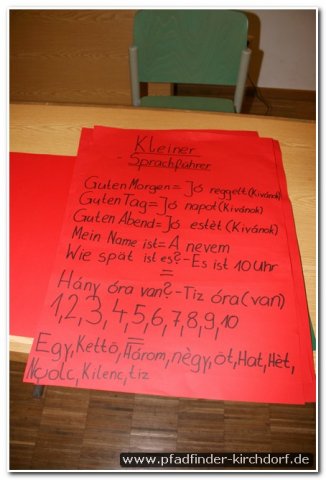 Kleiner
Sprachführer
Guten Morgen = Jó reggelt (Kivánok)
Guten Tag = Jó napot (Kivánok)
Guten Abend = Jó estét (Kivánok)
Mein Name ist = A nevem
Wie spät ist es? - Es ist 10 Uhr
=
Hány óra van? - Tiz óra (van)
1,2,3,4,5,6,7,8,9,10
=
Egy, Kettö, Három, nègy, öt, Hat, Hèt,
Nyolc, Kilenc, tiz
www.pfadfinder-kirchdorf.de